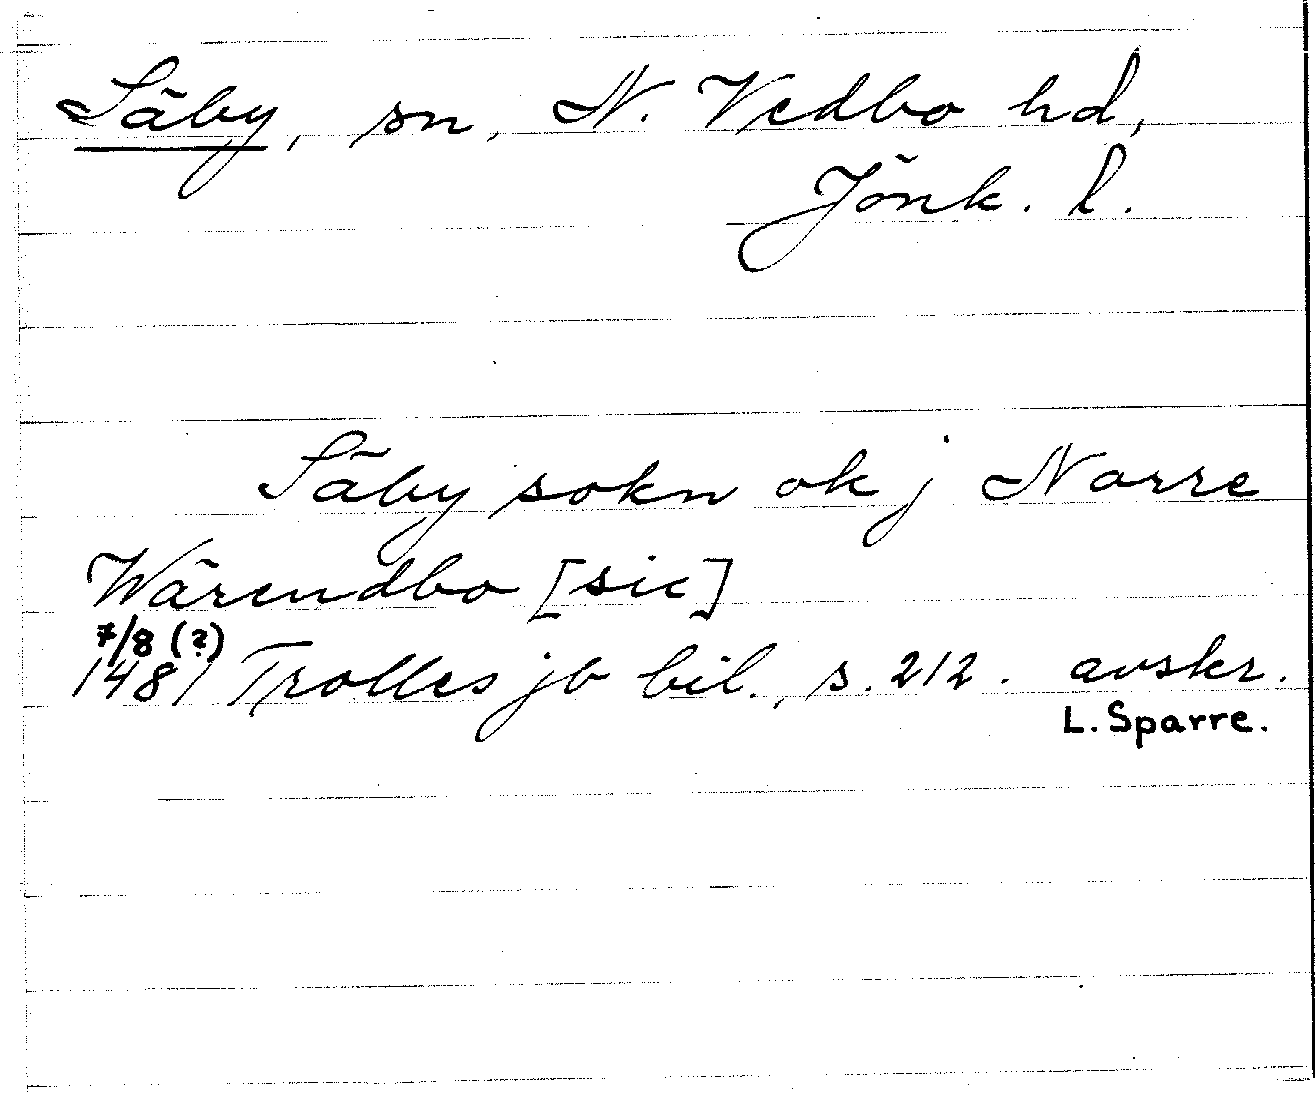 Säby, sn, N. Vedbo hd,
Jönk. l.
Säby sokn ok j Norre
Wärendbo [sic]
7/8 (?)
1481 Trolles jb bil., s. 212. avskr.
L. Sparre.